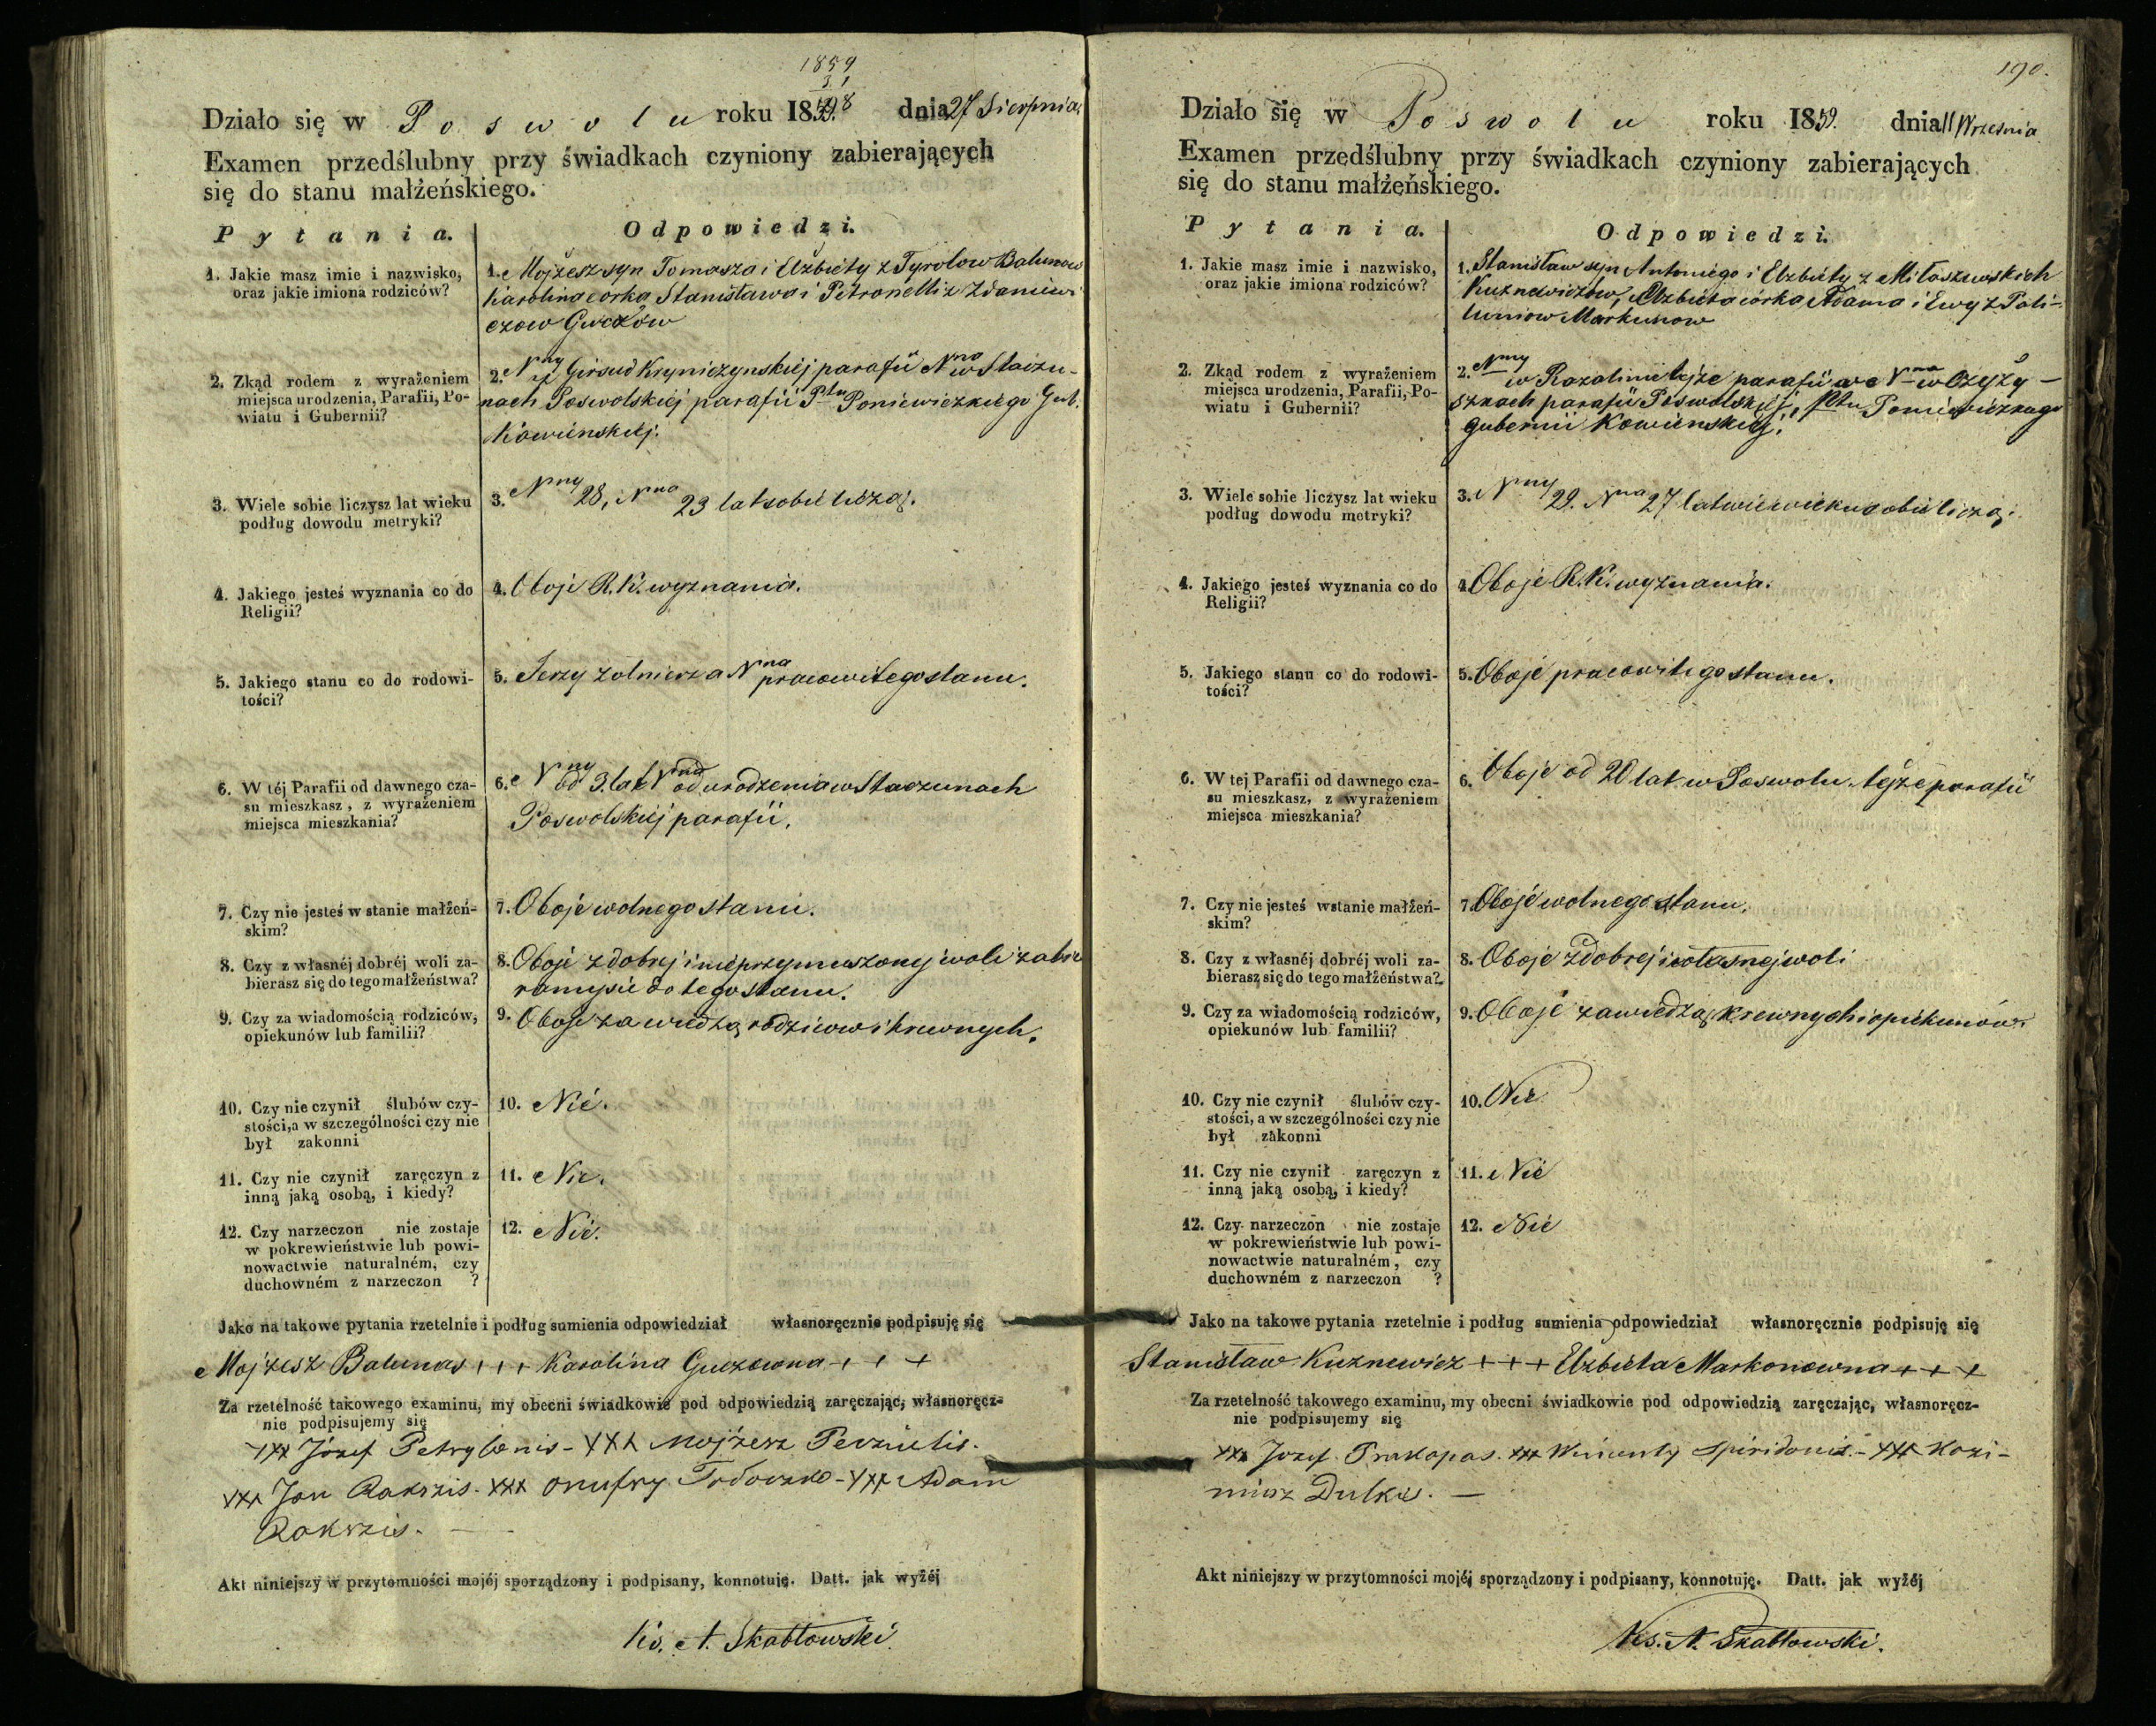 1859
31
Działo się w Poswolu roku 18 dnia 27 Sierpnia
Examen przedślubny przy świadkach czyniony zabierających
się do stanu małżeńskiego.
Pytania. Odpowiedzi.
1. Jakie masz imie i nazwisko,
oraz jakie imiona rodziców?
1. Mojżesz syn Tomasza i Elżbiety z Tyrolow Balunow
Karolina corka Stanisława i Petronelli z Zdaniewi
czow Guczów
2. Zkąd rodem z wyrażeniem
miejsca urodzenia, Parafii, Po-
wiatu i Gubernii?
2. Nny z Girsud Kryniczynskiej parafii Nna w Staczu-
nach Poswolskiej parafii Ptu Poniewiezkiego Gub.
Kowienskiej.
3. Wiele sobie liczysz lat wieku
podług dowodu metryki?
3. Nny 28, Nna 23 lat sobie liczą.
4. Jakiego jesteś wyznania co do
Religii?
4. Oboje R. K. wyznania.
5. Jakiego stanu co do rodowi-
tości?
5. Jerzy zolnierz a Nna pracowitego stanu.
6. W téj Parafii od dawnego cza-
su mieszkasz, z wyrażeniem
miejsca mieszkania?
6. Nny od 3. lat Nna od urodzenia w Staczunach
Poswolskiej parafii.
7. Czy nie jesteś w stanie małżeń-
skim?
7. Oboje wolnego stanu.
8. Czy z własnéj dobréj woli za-
bierasz się do tego małżeństwa?
8. Oboje z dobrej i nieprzymuszonej woli zabie
ramy sie do tego stanu.
9. Czy za wiadomością rodziców,
opiekunów lub familii?
9. Oboje za wiedzą rodzicow i krewnych.
10. Czy nie czynił ślubów czy-
stości, a w szczególności czy nie
był zakonni
10. Nie.
11. Czy nie czynił zaręczyn z
inną jaką osobą, i kiedy?
11. Nie.
12. Czy narzeczon nie zostaje
w pokrewieństwie lub powi-
nowactwie naturalném, czy
duchowném z narzeczon ?
12. Nie.
Jako na takowe pytania rzetelnie i podług sumienia odpowiedział własnoręcznie podpisuję się
Mojżesz Balunas +++ Karolina Guczowna +++
Za rzetelność takowego examinu, my obecni świadkowie pod odpowiedzią zaręczając, własnoręcz-
nie podpisujemy się
xxx Józef Petrylonis - xxx Mojżesz Perzielis.
xxx Jan Rakszis. xxx Onufry - xxx Adam
Rakszis. -
Akt niniejszy w przytomności mojéj sporządzony i podpisany, konnotuję. Datt. jak wyżéj
Ks. A. Skabłowski.
190.
Działo się w Poswolu roku 1859. dnia 11 Wrzesnia
Examen przedślubny przy świadkach czyniony zabierających
się do stanu małżeńskiego.
Pytania. Odpowiedzi.
1. Jakie masz imie i nazwisko,
oraz jakie imiona rodziców?
1. Stanisław syn Antoniego i Elzbiety z Miłaszewskich
Kuznewiczow, Elzbieta córka Adama i Ewy z Pali-
luniow Markunow
2. Zkąd rodem z wyrażeniem
miejsca urodzenia, Parafii, Po-
wiatu i Gubernii?
2. Nny w Rozalinie tejże parafii a Nna w Czyży-
szkach parafii Poswolskiej, Ptu Poniewiezkiego
gubernii Kowienskiej.
3. Wiele sobie liczysz lat wieku
podług dowodu metryki?
3. Nny 29. Nna 27 lat wieku sobie liczą.
4. Jakiego jesteś wyznania co do
Religii?
4. Oboje R. K. wyznania.
5. Jakiego stanu co do rodowi-
tości?
5. Oboje pracowitego stanu.
6. W tej Parafii od dawnego cza-
su mieszkasz, z wyrażeniem
miejsca mieszkania?
6. Oboje od 20 lat w Poswolu tejże parafii
7. Czy nie jesteś wstanie małżeń-
skim?
7. Oboje wolnego stanu.
8. Czy z własnéj dobréj woli za-
bierasz się do tego małżeństwa?
8. Oboje z dobrej i własnej woli
9. Czy za wiadomością rodziców,
opiekunów lub familii?
9. Oboje za wiedzą krewnych i opiekunów.
10. Czy nie czynił ślubów czy-
stości, a w szczególności czy nie
był zakonni
10. Nie
11. Czy nie czynił zaręczyn z
inną jaką osobą, i kiedy?
11. Nie
12. Czy narzeczon nie zostaje
w pokrewieństwie lub powi-
nowactwie naturalném, czy
duchowném z narzeczon ?
12. Nie
Jako na takowe pytania rzetelnie i podług sumienia odpowiedział własnoręcznie podpisuję się
Stanisław Kuznewicz +++ Elzbieta Markonowna +++
Za rzetelność takowego examinu, my obecni świadkowie pod odpowiedzią zaręczając, własnoręcz-
nie podpisujemy się
xxx Jozef Prakopas. xxx Wincenty Spiridonis. - xxx Kazi-
mierz Dulkis. -
Akt niniejszy w przytomności mojéj sporządzony i podpisany, konnotuję. Datt. jak wyżéj
Ks. A. Skabłowski.